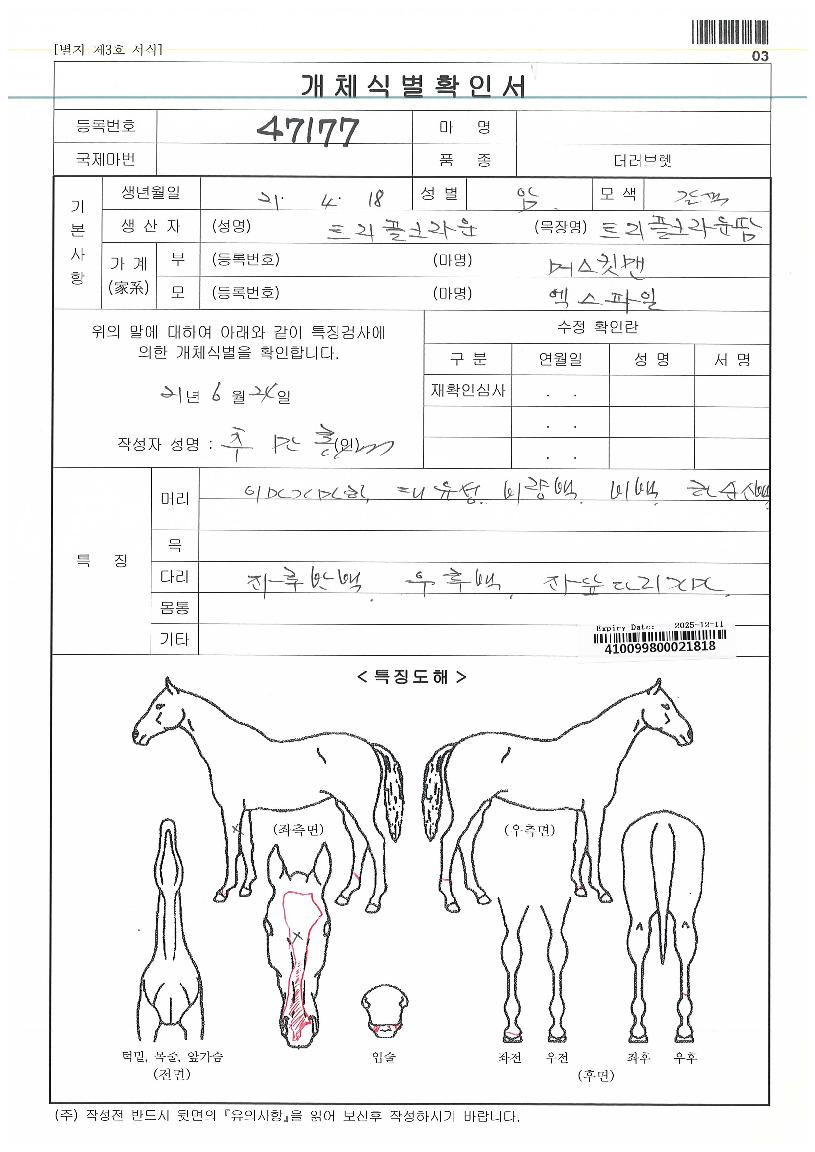 03
[별지 제3호 서식]
개체식별확인서
등록번호 47177 마 명
국제마번 품 종 더러브렛
기본사항
생년월일 21. 4. 18 성별 암 모색 갈색
생 산 자 (성명) 트리플크라운 (목장명) 트리플크라운팜
가 계 (家系) 부 (등록번호) (마명) 머스킷맨
모 (등록번호) (마명) 엑스파일
위의 말에 대하여 아래와 같이 특징검사에
의한 개체식별을 확인합니다.
21년 6월 24일
작성자 성명 : 추 (인)
수정 확인란
구 분 연월일 성 명 서 명
재확인심사 . .
. .
. .
특 징
머리 대유성, 비량백, 비백,
목
다리 좌후반백, 우후백,
몸통
기타
Expiry Date: 2025-12-11
410099800021818
< 특징도해 >
(좌측면) (우측면)
턱밑, 목줄, 앞가슴
(전면)
입술
좌전 우전 좌후 우후
(후면)
(주) 작성전 반드시 뒷면의 『유의사항』을 읽어 보신후 작성하시기 바랍니다.